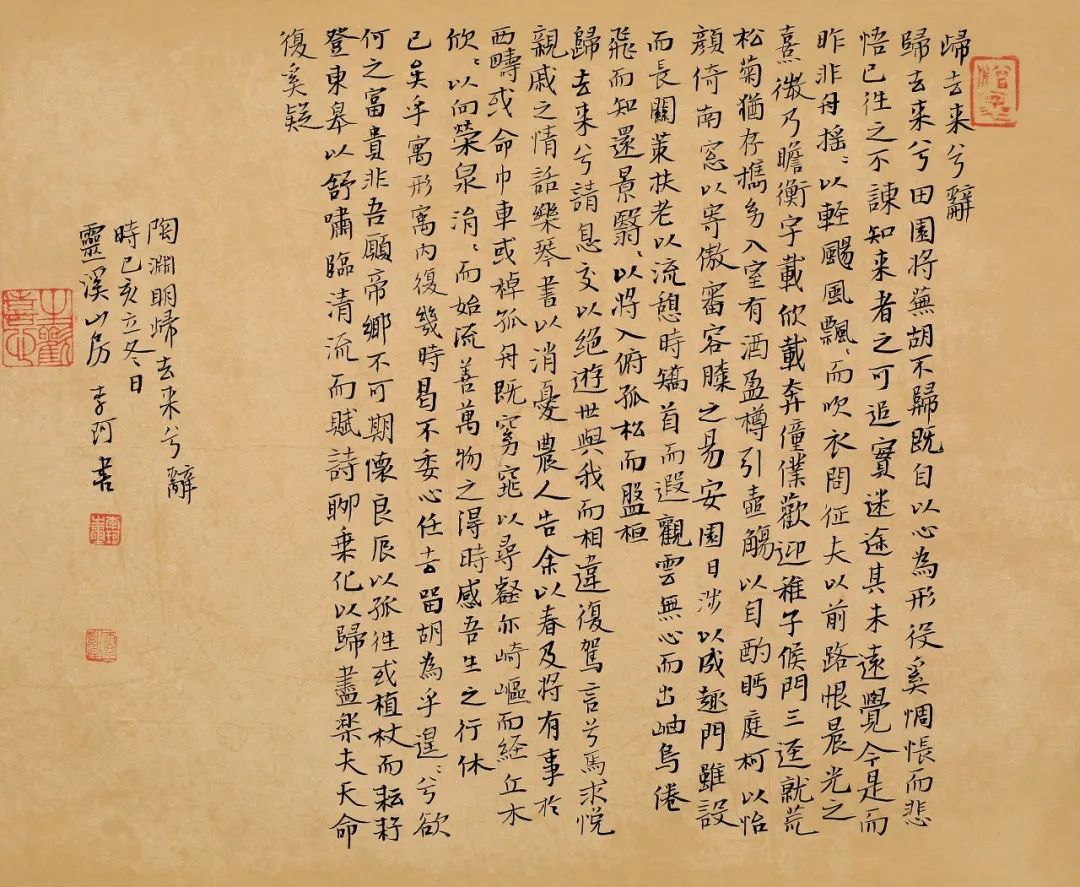 歸去来兮辭
歸去来兮田園将蕪胡不歸既自以心為形役奚惆悵而悲
悟已往之不諫知来者之可追實迷途其未遠覺今是而
昨非舟摇〻以輕颺風飄〻而吹衣問征夫以前路恨晨光之
熹微乃瞻衡字載欣載奔僮僕歡迎稚子候門三迳就荒
松菊猶存攜幼入室有酒盈樽引壺觴以自酌眄庭柯以怡
顔倚南窓以寄傲審容膝之易安園日涉以成趣門雖設
而長關策扶老以流憩時矯首而遐觀雲無心而出岫鳥倦
飛而知還景翳〻以将入俯孤松而盤桓
歸去来兮請息交以絕遊世與我而相違復駕言兮焉求悦
親戚之情話樂琴書以消憂農人告余以春及将有事於
西疇或命巾車或棹孤舟既窈窕以尋壑亦崎嶇而經丘木
欣〻以向榮泉涓〻而始流善萬物之得時感吾生之行休
已矣乎寓形寓内復幾時曷不委心任去留胡為乎遑〻兮欲
何之富貴非吾願帝鄉不可期懷良辰以孤往或植杖而耘耔
登東皋以舒嘯臨清流而賦詩聊乗化以歸盡樂夫天命
復奚疑
陶淵明歸去来兮辭
時己亥立冬日
靈溪山房李珂書